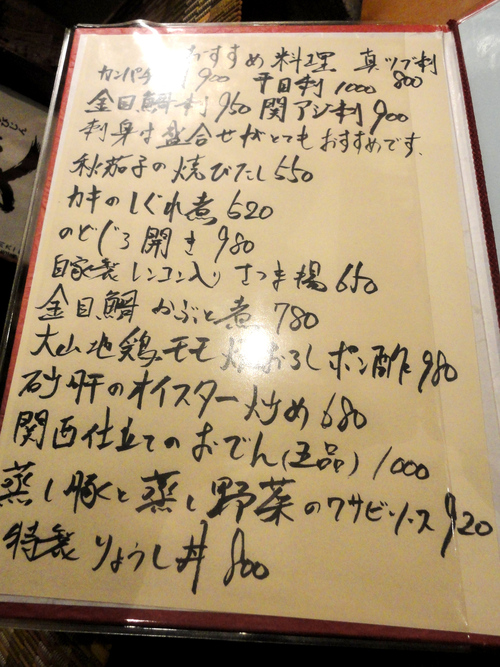 おすすめ料理 真ツブ刺 800
カンパチ刺 900 平目刺 1000
金目鯛刺 950 関アジ刺 900
刺身は盛合せがとてもおすすめです。
秋茄子の焼びたし 550
カキのしぐれ煮 620
のどじろ開き 980
自家製レンコン入りさつま揚 650
金目鯛かぶと煮 780
大山地鶏モモ焼おろしポン酢 980
砂肝のオイスター炒め 680
関西仕立てのおでん(五品) 1000
蒸し豚と蒸し野菜のワサビソース 920
特製りょうし丼 800